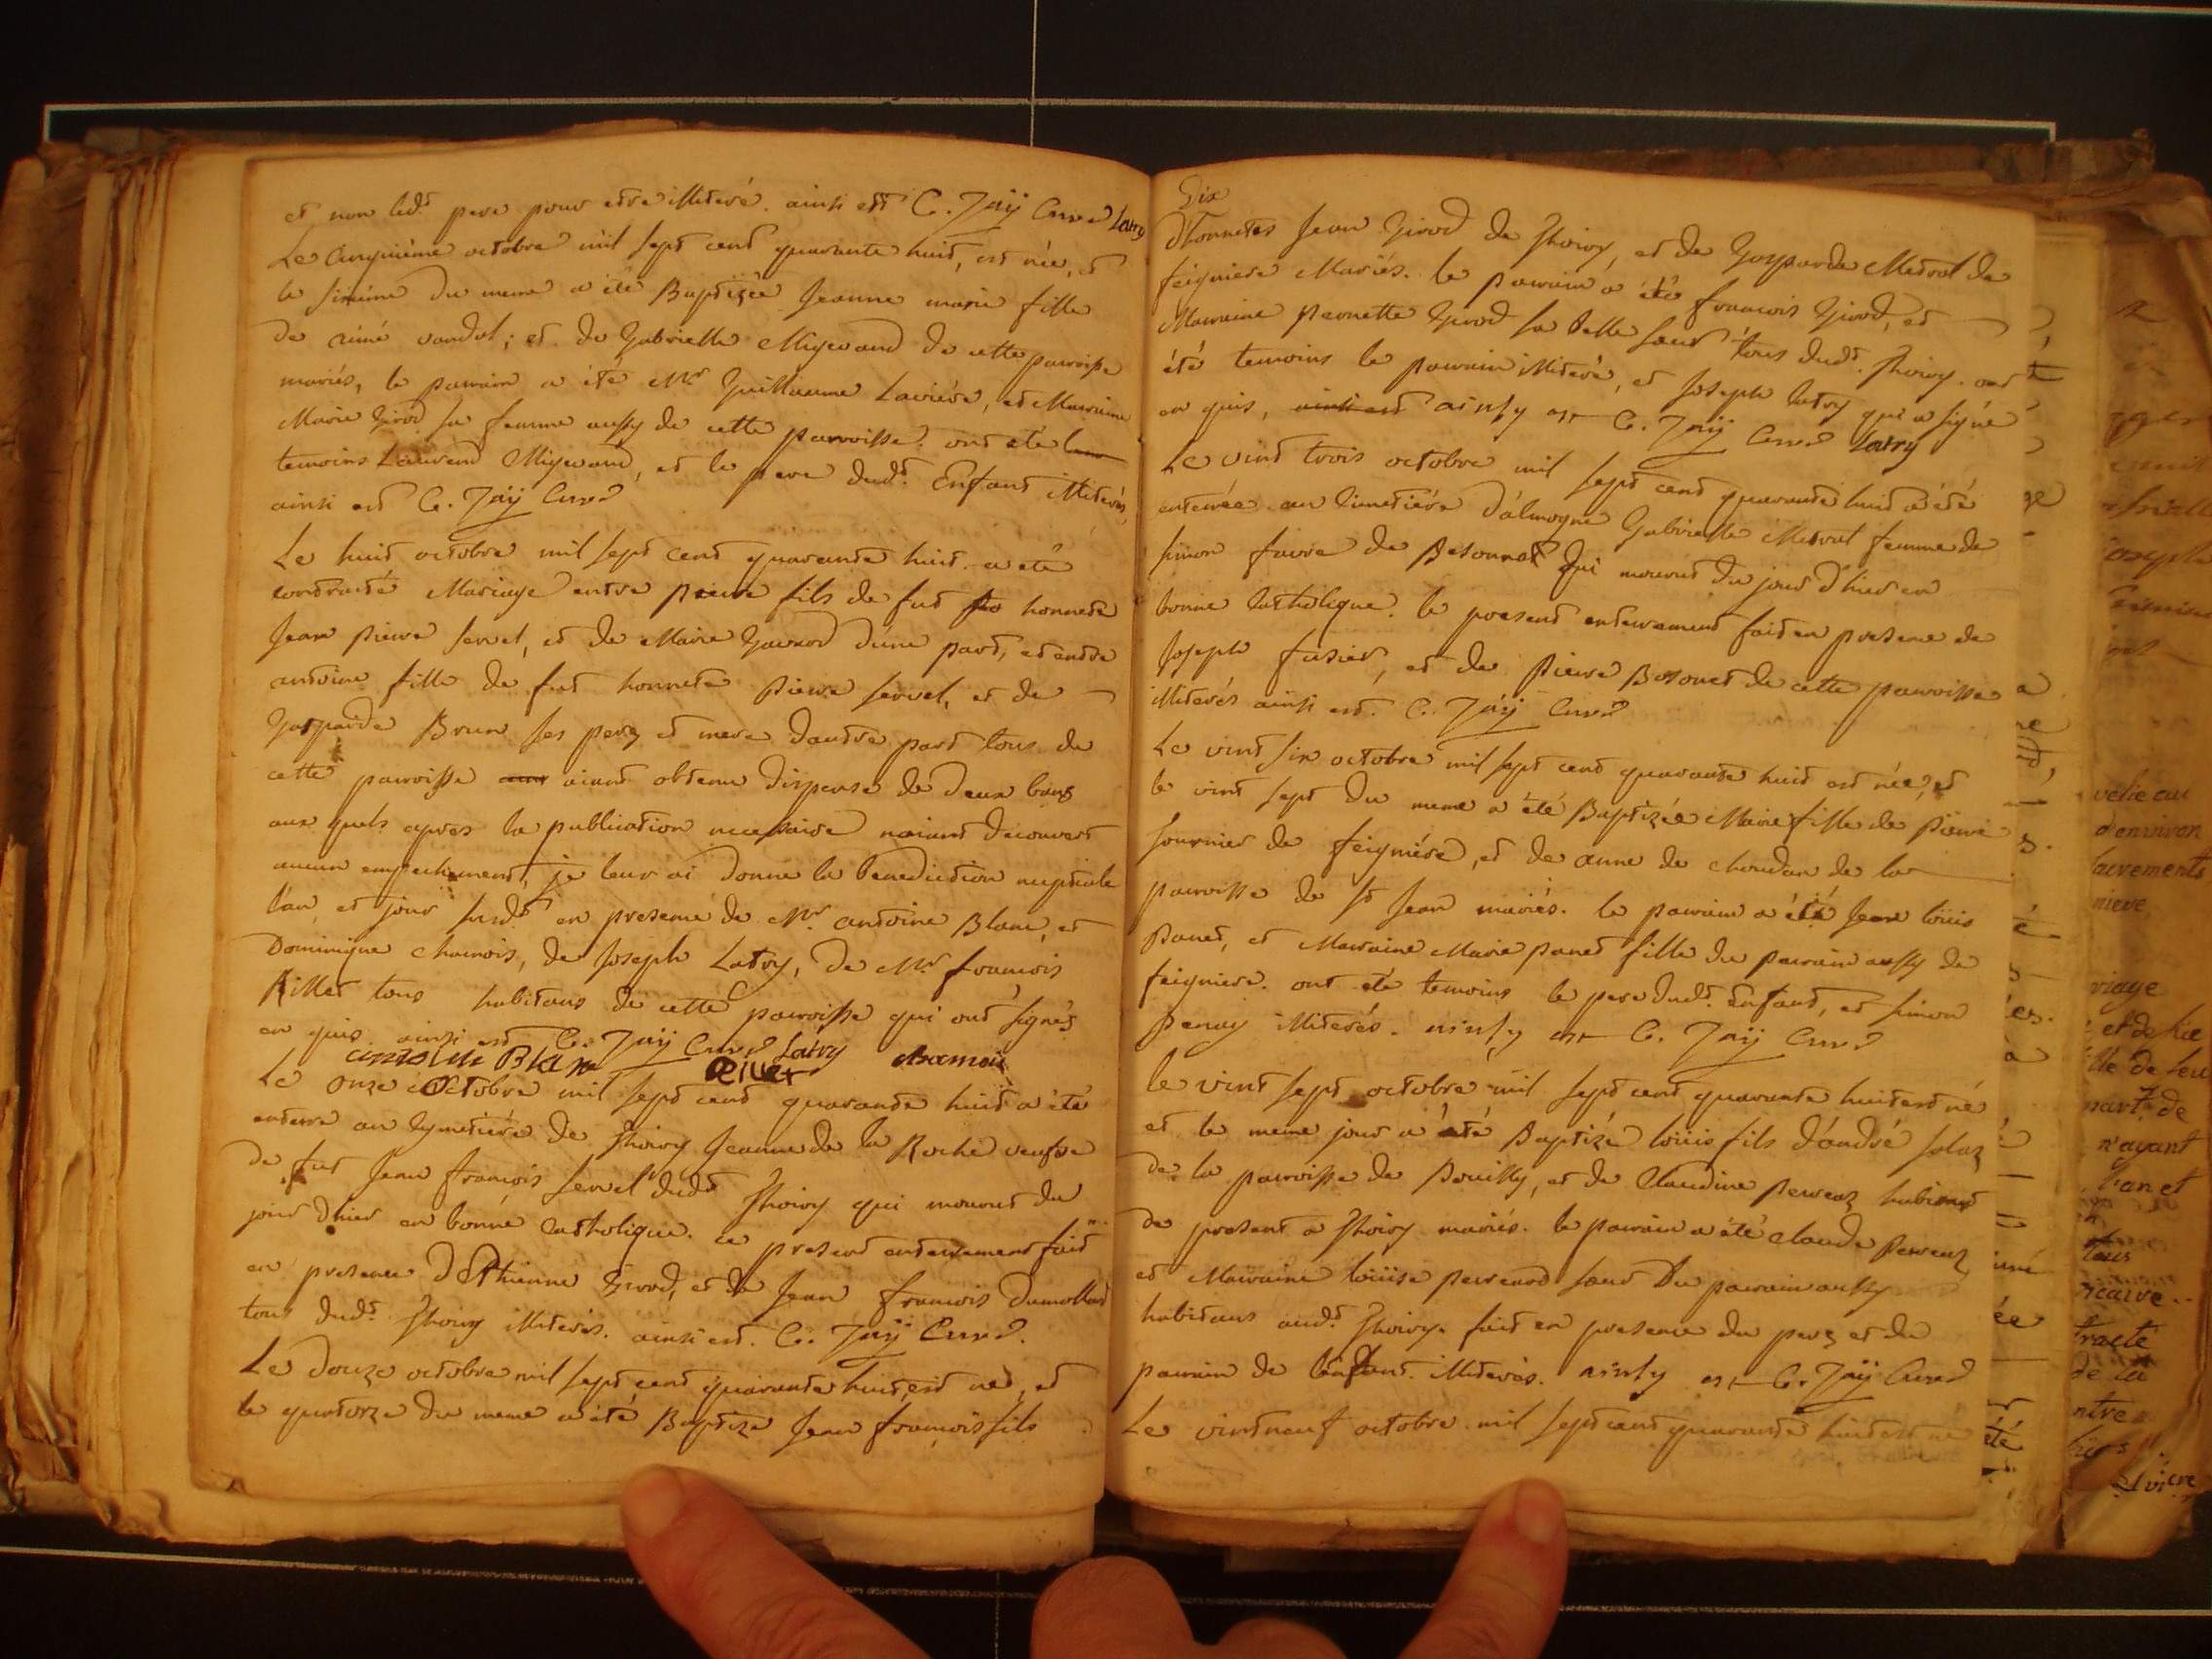 et non led.t pere pour etre illiteré. ainsi est C. Jaÿ Curé Latry
Le Cinquiéme octobre mil sept cent quarante huit, est née, et
le sixiéme du meme a été Baptizée Jeanne marie fille
de aimé vandel; et de Gabrielle Migevand de cette paroisse
mariés, le parrain a été M.r Guillaume Laviére, et Marraine
Marie Girod sa femme aussy de cette parroisse. ont été
temoins Laurend Migevand, et le pere dud.t Enfant illiterés
ainsi est C. Jaÿ Curé
Le huit octobre mil sept cent quarante huit a été
contracté Mariage entre Pierre fils de fut honneste
Jean pierre servel, et de Marie d'une part, et entre
antoine fille de fut honneste Pierre servel, et de
Gasparde Brun ses perez et mere d'autre part tous de
cette paroisse aiant obtenu dispense de deux bans
aux quels apres la publication necessaire naiant decouvert
aucun empechement, je leur ai donne la Benediction nuptiale
l'an et jour susd.t en presence de M.r antoine Blanc, et
Dominique chamois, de Joseph Latry, de M.r françois
Rillet tous habitans de cette paroisse qui ont signés
en quis ainsi est C. Jaÿ Curé Latry
antoine Blan
Le onze octobre mil sept cent quarante huit a été
enterre au Cymetiére de Thoiry Jeanne de la Roche veufve
de fut Jean françois servel dud.t Thoiry qui mourut du
jour d'hier en bonne Catholique. ce present enterrement fait
en presence D'Ethienne Girod, et de Jean françois Dumollard
tous dud.t Thoiry illiterés. ainsi est. C. Jaÿ Curé.
Le douze octobre mil sept cent quarante huit, est né, et
le quatorze du meme a été Baptize Jean françois fils
Dix
d'honnetes Jean Girod de Thoiry, et de Gasparde Metral de
feigniere Mariés. le parrain a été françois Girod, et
Marraine Pernette Girod sa belle soeur tous dud.t Thoiry. ont
été temoins le parrain illiteré, et Joseph latry qui a signé
en quis, ainsi est ainsy est C. Jaÿ Curé Latry
Le vint trois octobre mil sept cent quarante huit a été
enterrée au Cimetiére d'almogne Gabrielle Metral femme de
simon favre de Besonnet qui mourut du jour d'hier en
bonne Catholique. le present enterrement fait en presence de
Joseph fusier, et de Pierre Bosonet de cette parroisse
illiterés ainsi est. C. Jaÿ Curé
Le vint six octobre mil sept cent quarante huit est née, et
le vint sept du meme a été Baptizée Marie fille de Pierre
fournier de feigniére, et de anne de choudan de la
parroisse de S.t Jean mariés. le parrain a été Jean loüis
Panet, et Marraine Marie panet fille du parrain aussy de
feigniere. ont été temoins le pere dud.t Enfant, et simon
Penay illiterés. ainsy est C. Jaÿ Curé
Le vint sept octobre mil sept cent quarante huit est né
et le meme jour a été Baptizé loüis fils d'andré solaz
de la parroisse de Pouilly, et de Claudine Perreaz habitans
de present a Thoiry mariés. le parrain a été claude Perreaz
et Marraine loüise Perreard soeur du parrain aussy
habitans aud.t Thoiry. fait en presence du perez et du
parrain de l'enfant. illiterés. ainsy est C. Jaÿ Curé
Le vintneuf octobre mil sept cent quarante huit est né